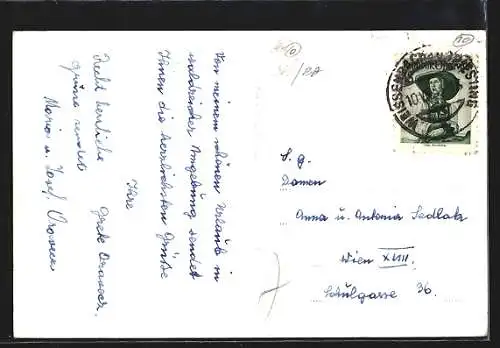 Von meinem schönen Urlaub in
waldreicher Umgebung sendet
Ihnen die herrlichsten Grüße
Ihre
Grete
Recht herzliche
Grüße sendet
Maria u. Josef
WEISSENBACH AN DER TRIESTING
S. g.
Damen
Anna u. Antonia Sedlak
Wien XVIII
Schulgasse 36.